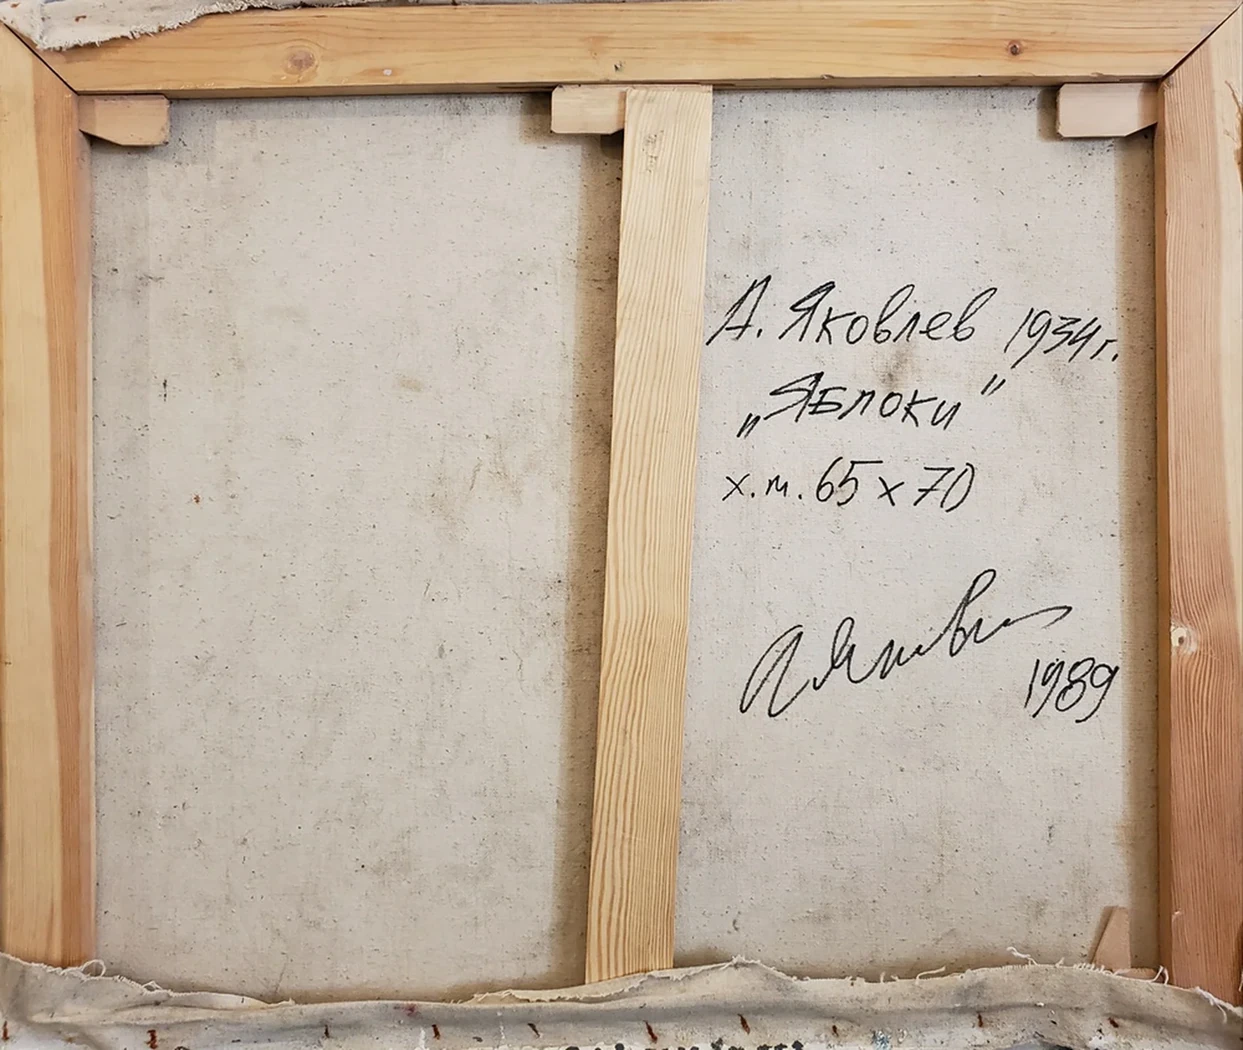 А. Яковлев 1934г.
„Яблоки"
х.м. 65 х 70
1989